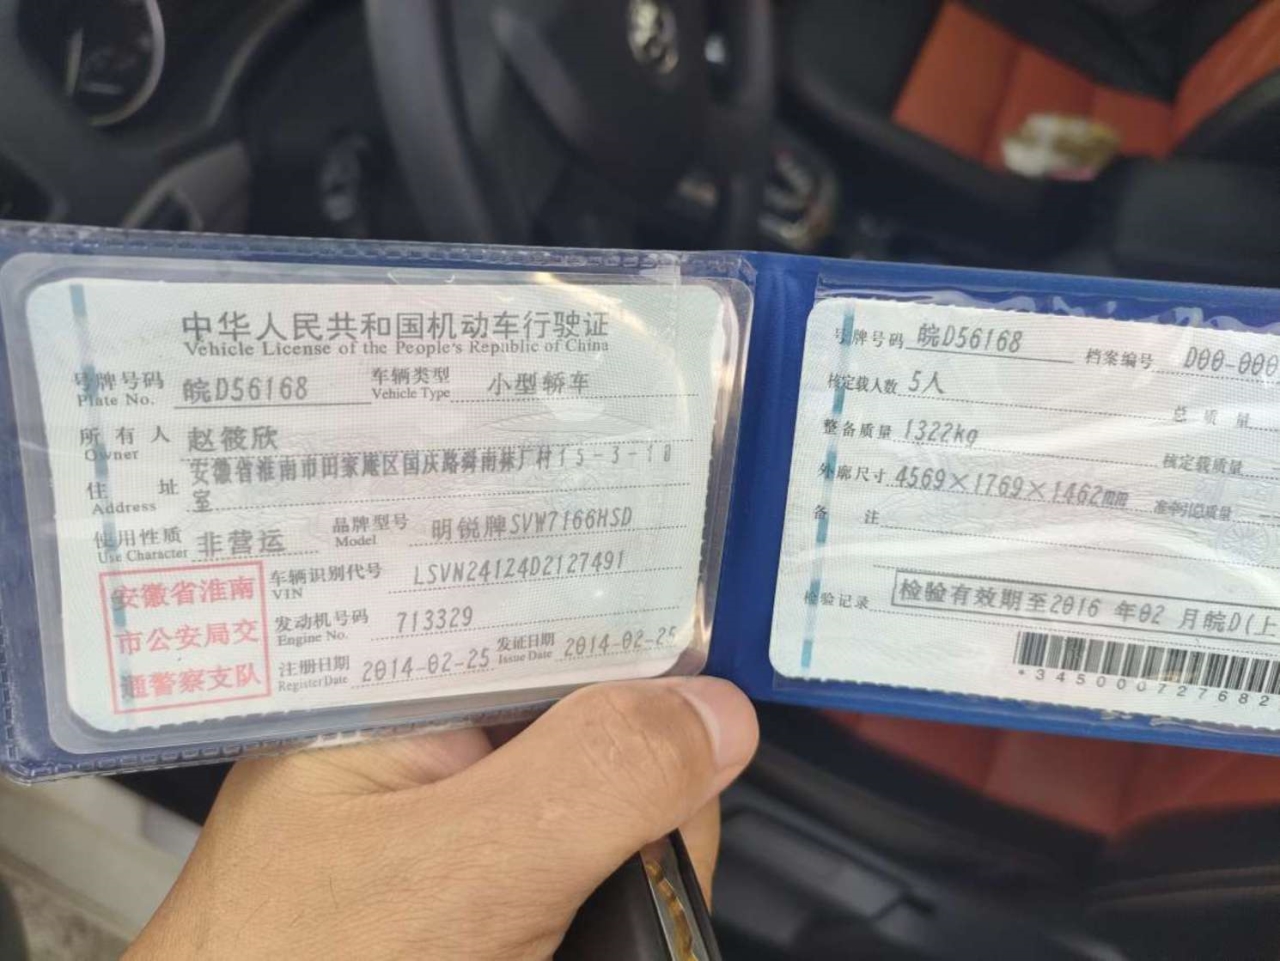 中华人民共和国机动车行驶证
Vehicle License of the People's Republic of China
号牌号码 皖D56168 车辆类型 小型轿车
Plate No. Vehicle Type
所有人 赵筱欣
Owner
住址 安徽省淮南市田家庵区国庆路舜南袜厂村15-3-10
Address 室
使用性质 非营运 品牌型号 明锐牌SVW7166HSD
Use Character Model
安徽省淮南
市公安局交
通警察支队
车辆识别代号 LSVN24124D2127491
VIN
发动机号码 713329
Engine No.
注册日期 2014-02-25 发证日期 2014-02-25
Register Date Issue Date
号牌号码 皖D56168 档案编号 D00-000
核定载人数 5人 总质量
整备质量 1322kg 核定载质量
外廓尺寸 4569×1769×1462mm 准牵引总质量
备注
检验记录 检验有效期至2016年02月皖D(上
*345000727682